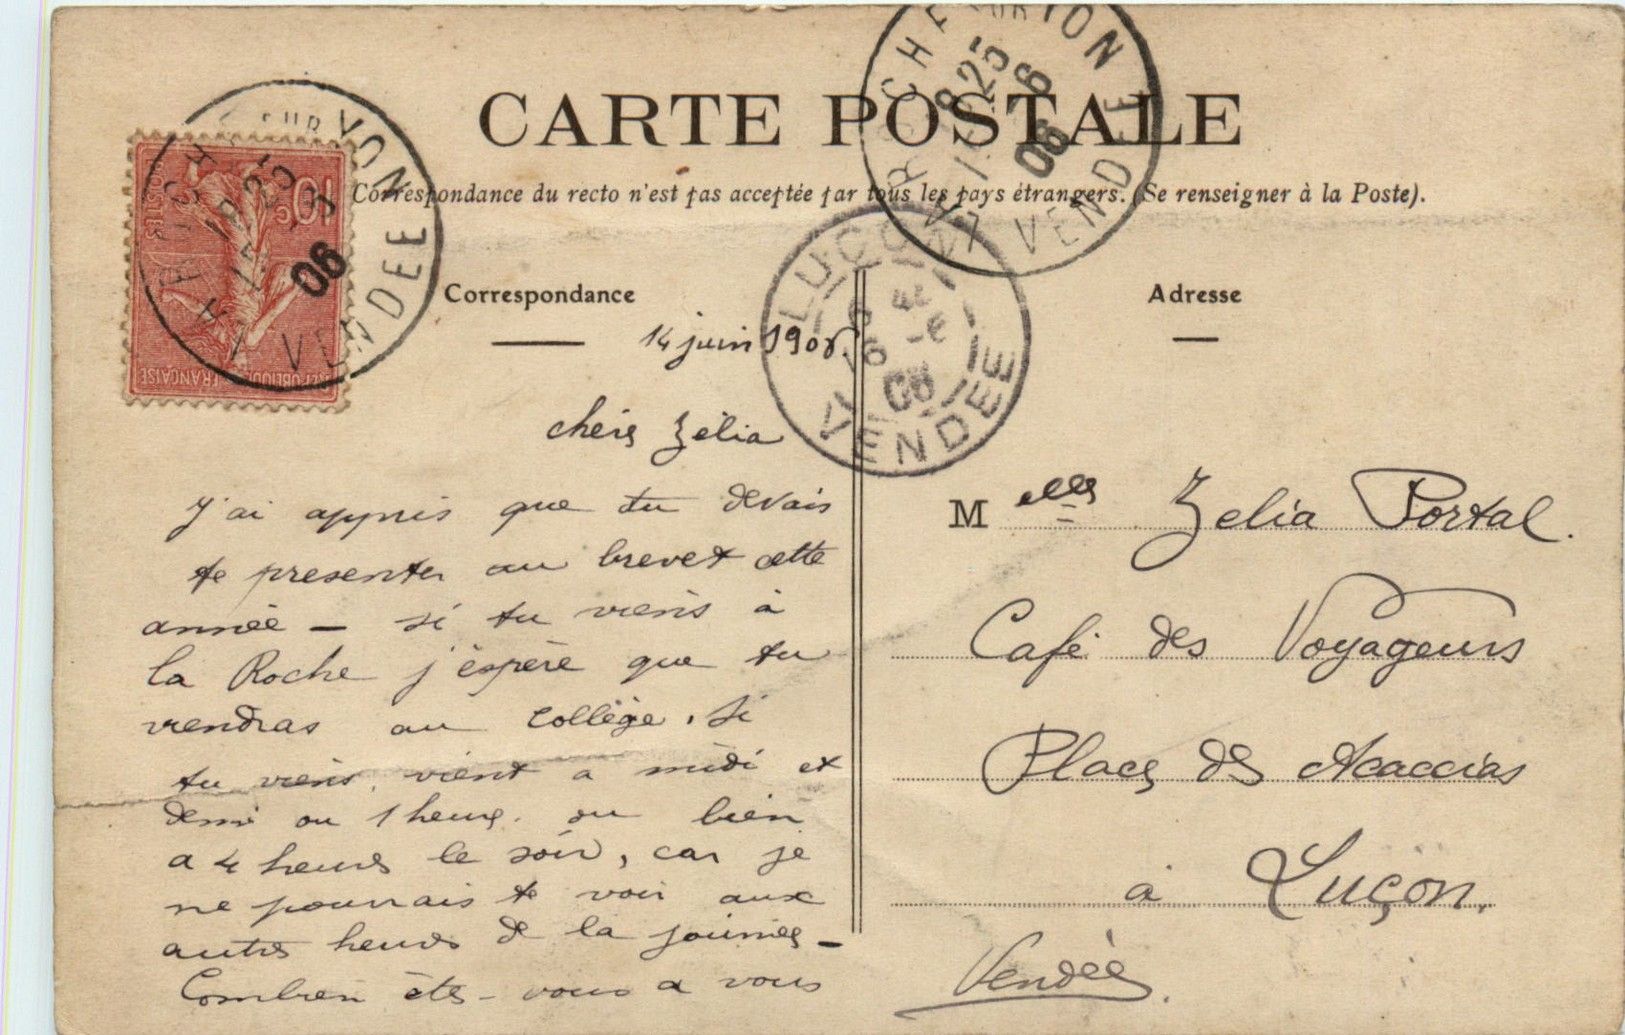 CARTE POSTALE
Correspondance du recto n'est pas acceptée par tous les pays étrangers. (Se renseigner à la Poste).
LA ROCHE SUR YON
18 25
06
VENDEE
LA ROCHE SUR YON
18 25
6
06
VENDEE
POSTES
10
REPUBLIQUE FRANÇAISE
LUÇON
16
06
VENDEE
Correspondance
14 juin 1906.
chère Zélia
J'ai appris que tu devais
te presenter au brevet cette
année — si tu viens à
la Roche j'éspère que tu
viendras au collège. Si
tu viens, vient a midi et
demi ou 1 heure. ou bien
a 4 heures le soir, car je
ne pourrais te voir aux
autres heures de la journée —
Combien êtes-vous a vous
Adresse
Melle Zelia Portal.
Café des Voyageurs
Place des Acaccias
à Luçon.
Vendée.